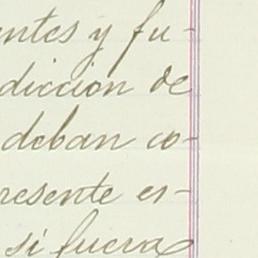 entes y fu-
diccion de
deban co-
resente es-
si fuera